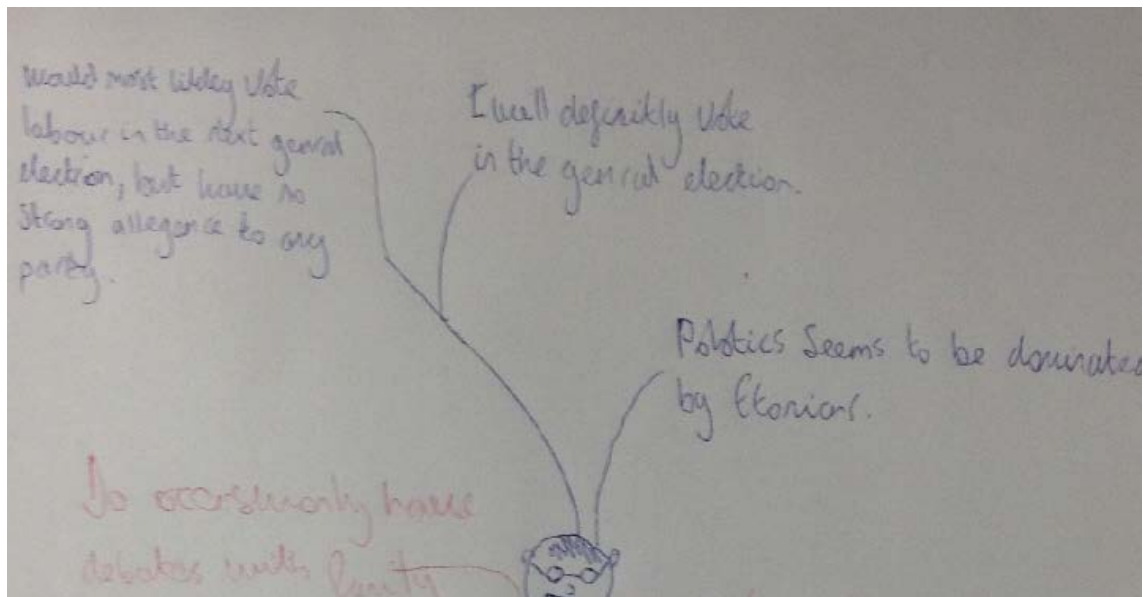 Would most likley Vote
labour in the next genral
election, but have no
Strong allegence to any
party.
I will definitly Vote
in the genral election.
Polotics Seems to be dominated
by Etonians.
Do occasionaly have
debates with family